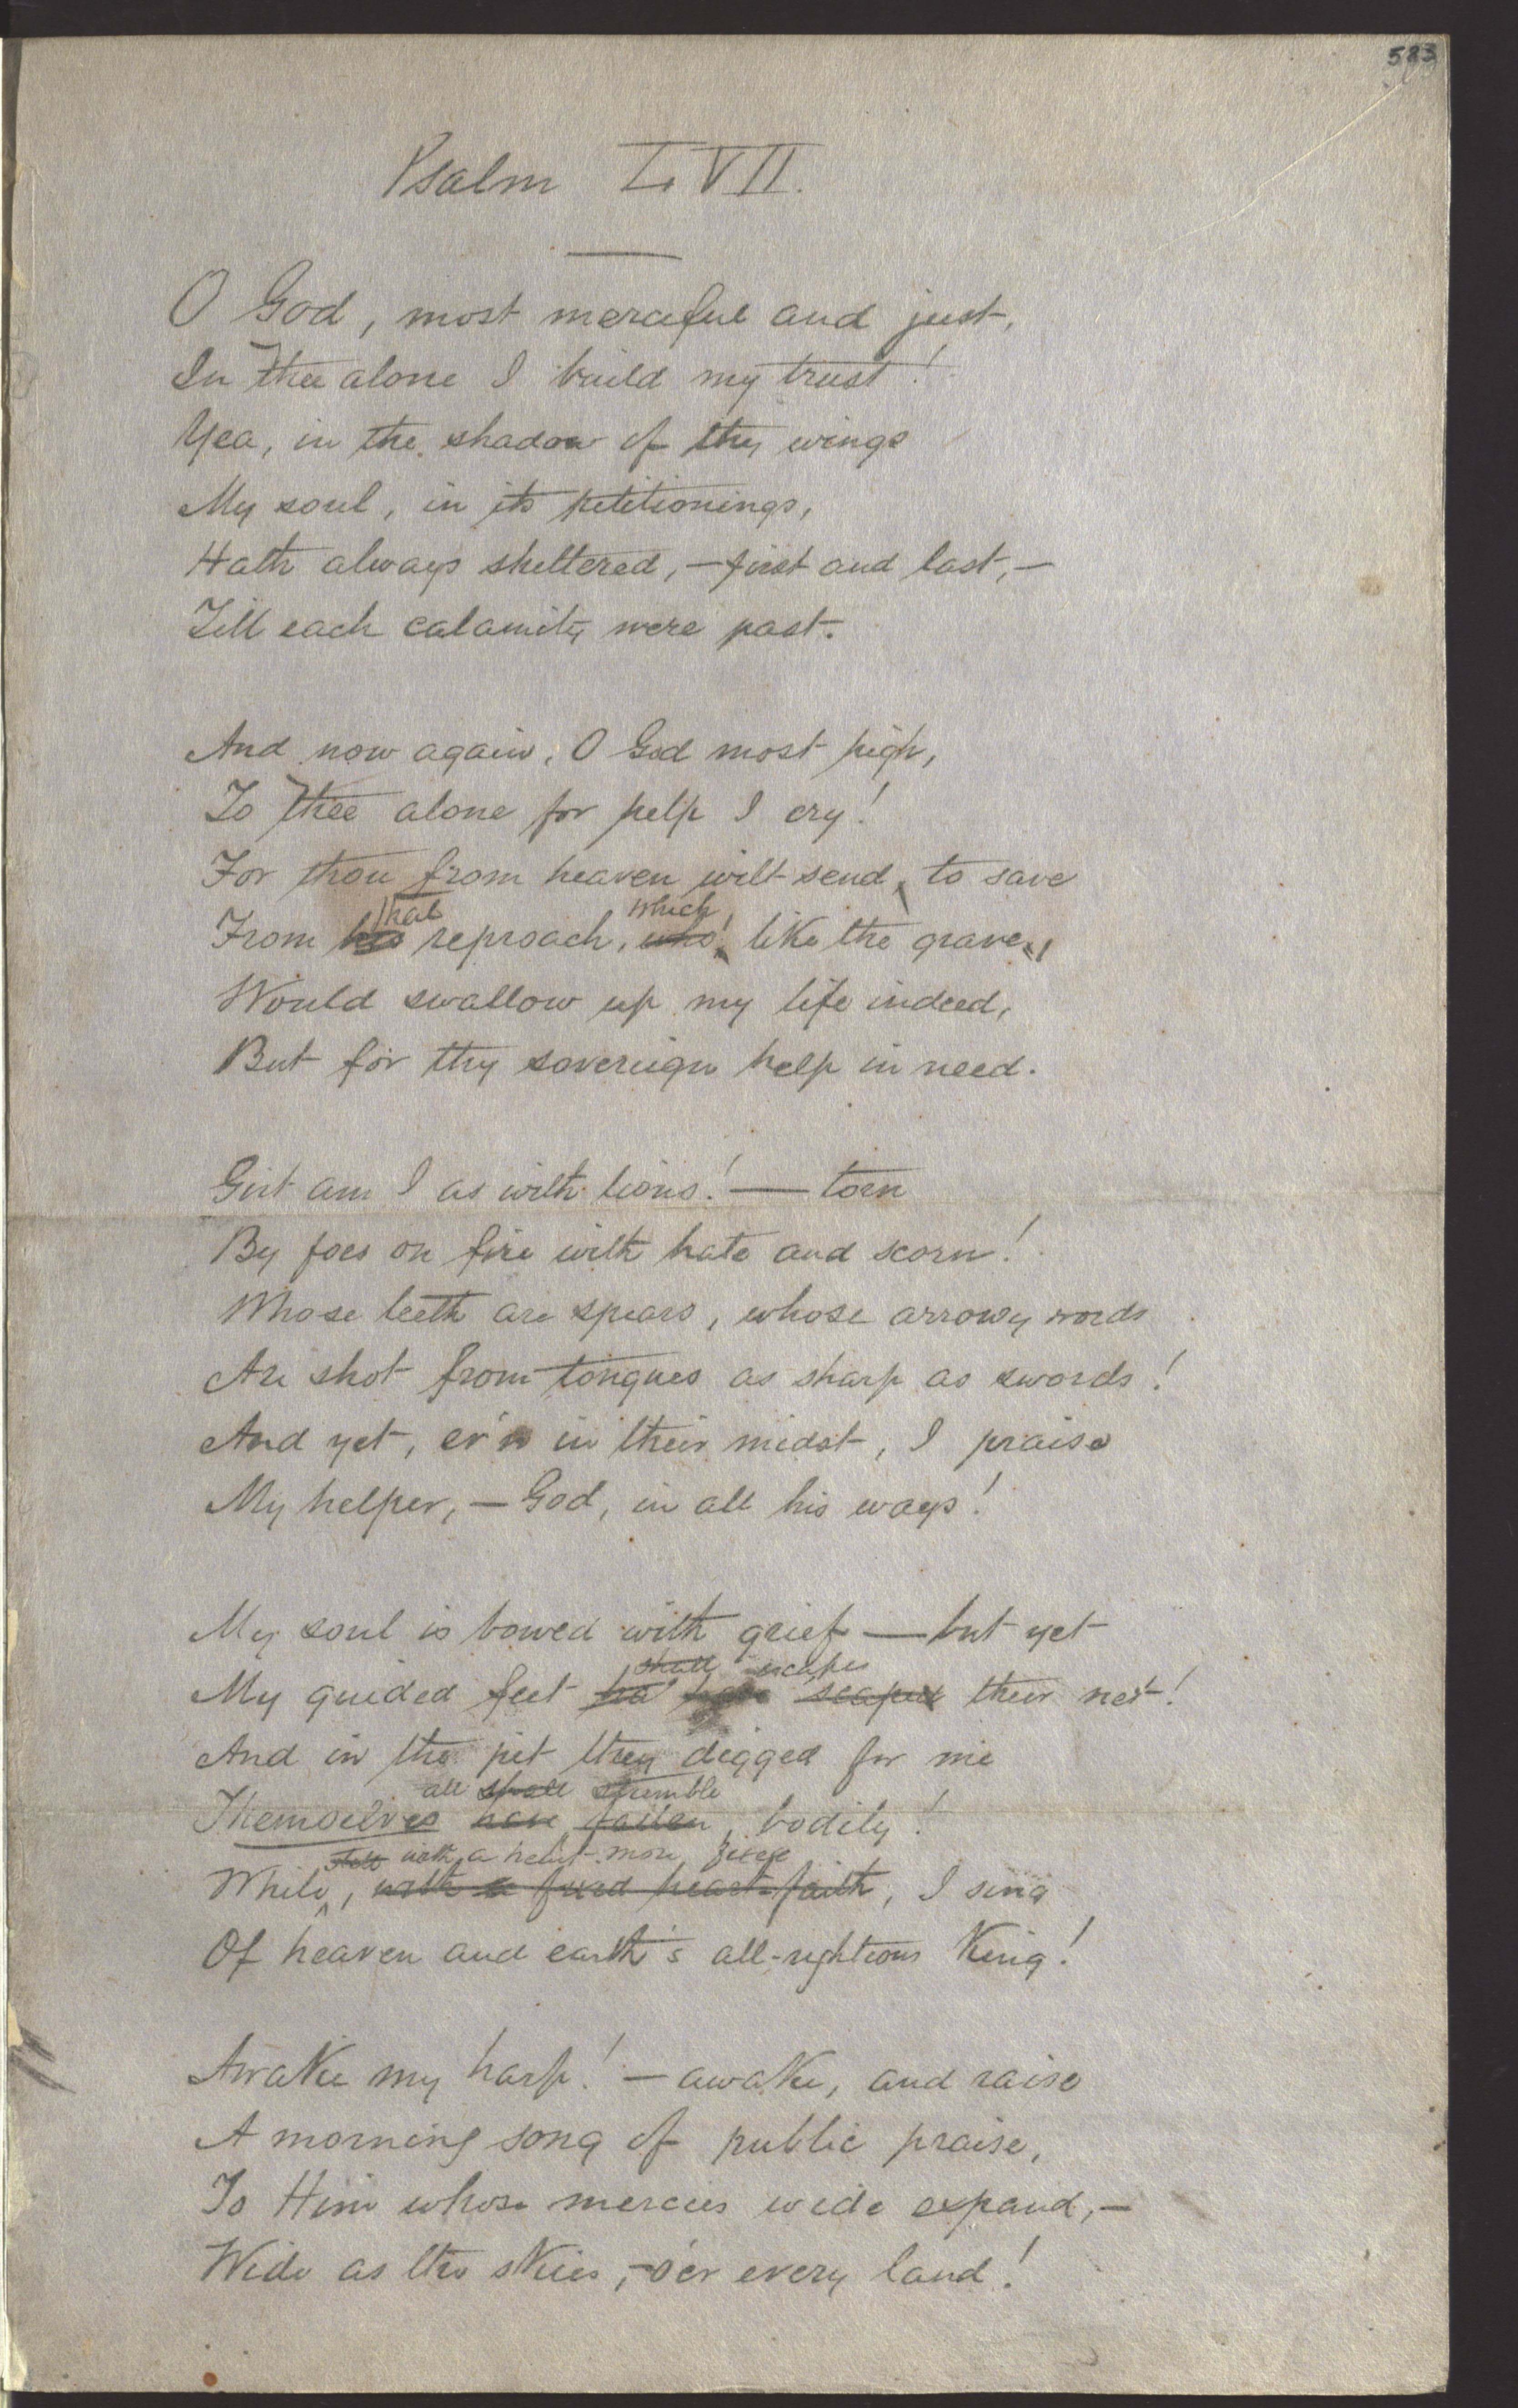 583
Psalm LVII.
O God, most merciful and just,
In Thee alone I build my trust!
Yea, in the shadow of thy wings
My soul, in its petitionings,
Hath always sheltered, — first and last, —
Till each calamity were past.
And now again, O God most high,
To Thee alone for help I cry!
For thou from heaven wilt send, to save
that which
From his reproach, who, like the grave,
Would swallow up my life indeed,
But for thy sovereign help in need.
Girt am I as with lions! — torn
By foes on fire with hate and scorn!
Whose teeth are spears, whose arrowy words
Are shot from tongues as sharp as swords!
And yet, ev'n in their midst, I praise
My helper, — God, in all his ways!
My soul is bowed with grief — but yet
shall escapes
My guided feet ha' have scaped their net!
And in the pit they digged for me
all shall stumble
Themselves have fallen, bodily!
with a heart more
While, with a fixed heart-faith, I sing
Of heaven and earth's all-righteous King!
Awake my harp! — awake, and raise
A morning song of public praise,
To Him whose mercies wide expand, —
Wide as the skies, — o'er every land!